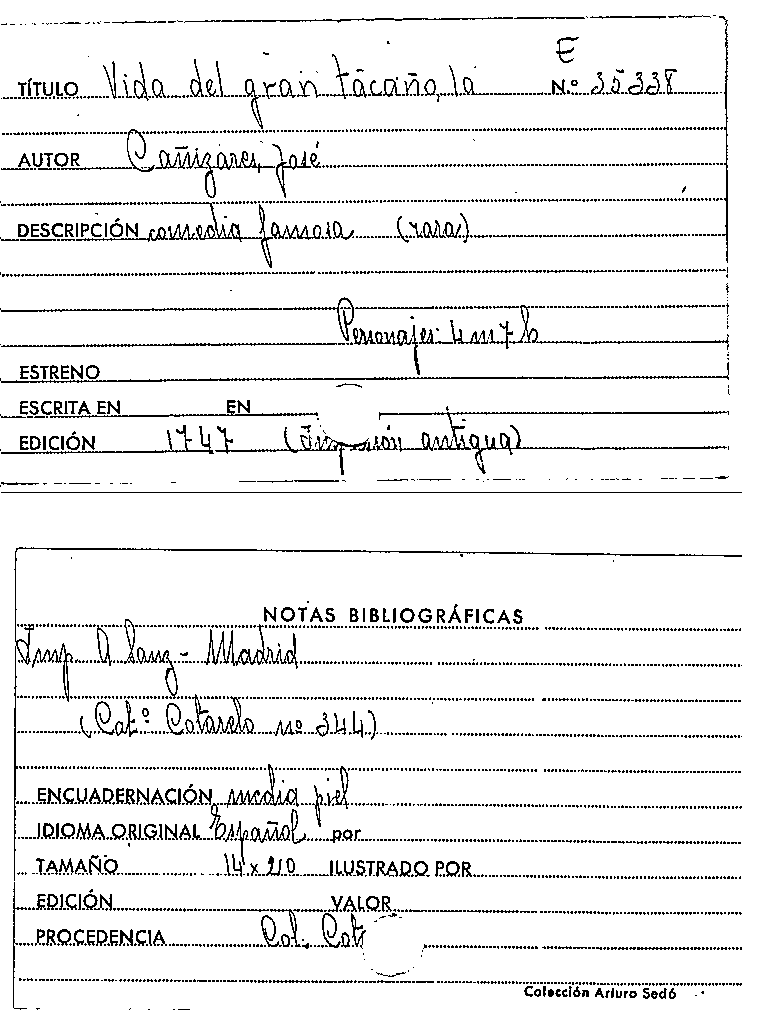 E
TÍTULO Vida del gran tacaño, la N.º 35338
AUTOR Cañizares, José
DESCRIPCIÓN comedia famosa (rara)
Personajes: 4 m 7 h
ESTRENO
ESCRITA EN EN
EDICIÓN 1747 (Impresión antigua)
NOTAS BIBLIOGRÁFICAS
Imp. A Sanz - Madrid
(Cat.º Cotarelo nº 344)
ENCUADERNACIÓN media piel
IDIOMA ORIGINAL Español por
TAMAÑO 14 x 210 ILUSTRADO POR
EDICIÓN VALOR
PROCEDENCIA Col. Cot
Colección Arturo Sedó